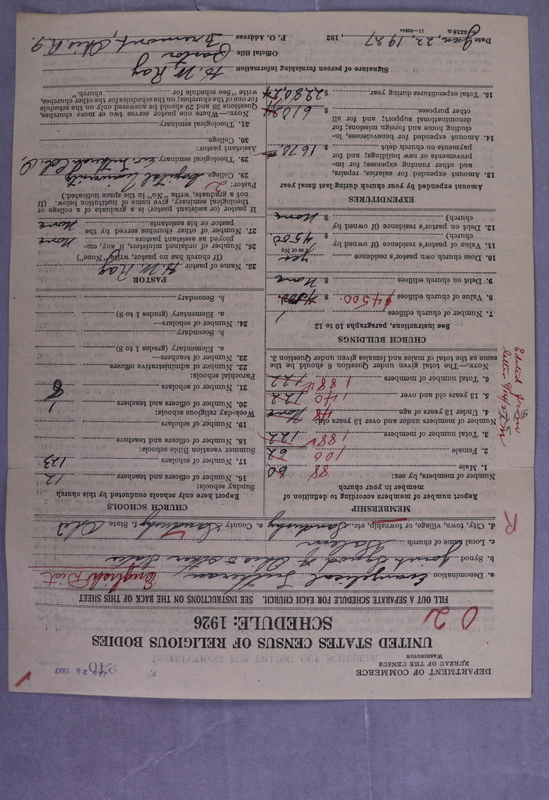 DEPARTMENT OF COMMERCE
BUREAU OF THE CENSUS
WASHINGTON
UNITED STATES CENSUS OF RELIGIOUS BODIES
SCHEDULE: 1926
FILL OUT A SEPARATE SCHEDULE FOR EACH CHURCH. SEE INSTRUCTIONS ON THE BACK OF THIS SHEET
a. Denomination Evangelical Lutheran English Dist
b. Synod Joint Synod of Ohio & other States
c. Local name of church Salem
d. City, town, village, or township, etc. Sandusky e. County Sandusky f. State Ohio
MEMBERSHIP
Report number of members according to definition of
member in your church
Number of members, by sex:
1. Male 88 60
2. Female 100 62
3. Total number of members 188 122
Number of members under and over 13 years old:
4. Under 13 years of age 48 None
5. 13 years old and over 140 122
6. Total number of members 188 122
NOTE.—The total given under Question 6 should be the
same as the total of males and females given under Question 3.
CHURCH BUILDINGS
See instructions, paragraphs 10 to 12
7. Number of church edifices 1
8. Value of church edifices $4500
9. Debt on church edifices $ None
10. Does church own pastor's residence yes
(Yes or No)
11. Value of pastor's residence (if owned by
church) $ 4500
12. Debt on pastor's residence (if owned by
church) $ None
EXPENDITURES
Amount expended by your church during last fiscal year
13. Amount expended for salaries, repairs,
and other running expenses; for im-
provements or new building; and for
payments on church debt $ 1670
14. Amount expended for benevolences, in-
cluding home and foreign missions; for
denominational support; and for all
other purposes $ 610.24
15. Total expenditures during year $ 2280.24
CHURCH SCHOOLS
Report here only schools conducted by this church
Sunday schools:
16. Number of officers and teachers 12
17. Number of scholars 123
Summer vacation Bible schools:
18. Number of officers and teachers
19. Number of scholars
Week-day religious schools:
20. Number of officers and teachers 1
21. Number of scholars 8
Parochial schools:
22. Number of administrative officers
23. Number of teachers—
a. Elementary (grades 1 to 8)
b. Secondary
24. Number of scholars—
a. Elementary (grades 1 to 8)
b. Secondary
PASTOR
25. Name of pastor H. W. Ray
(If church has no pastor, write "None")
26. Number of ordained ministers, if any, em-
ployed as assistant pastors None
27. Number of other churches served by the
pastor or his assistants None
If pastor (or assistant pastor) is a graduate of a college or
theological seminary, give name of institution below. (If
not a graduate, write "No" in the space indicated.)
Pastor:
28. College Capital University
29. Theological seminary
Assistant pastor:
30. College
31. Theological seminary
NOTE.—Where one pastor serves two or more churches,
Questions 28 and 29 should be answered only on the schedule
for one of the churches; on the schedules for the other churches,
write "See schedule for church."
Signature of person furnishing information H. W. Ray
Official title Pastor
P. O. Address Fremont, Ohio
Date Jan. 22, 1927, 192